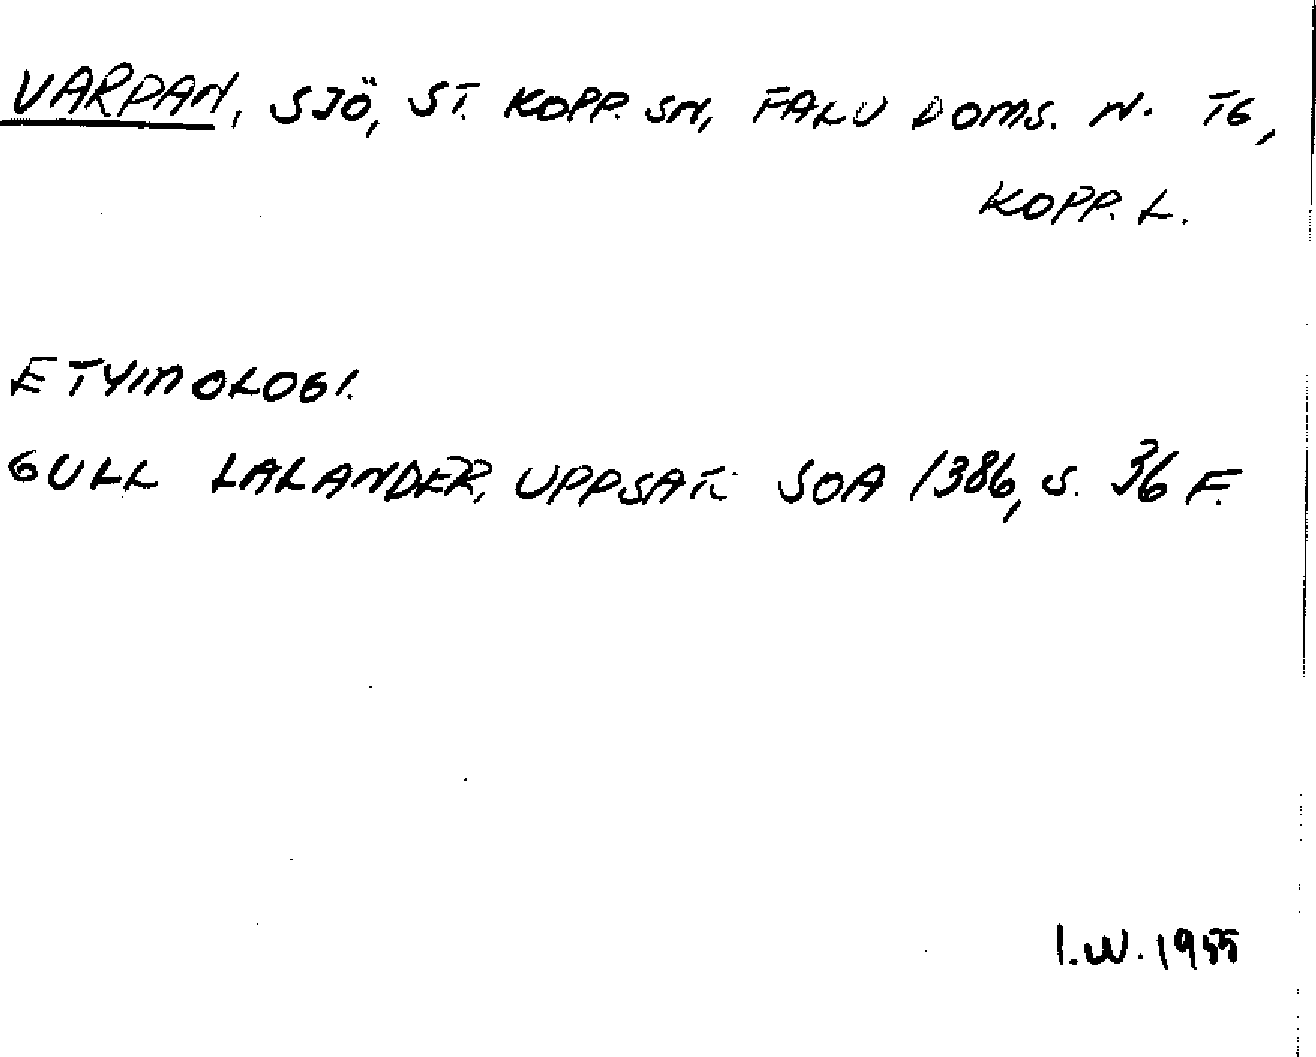 VARPAN, SJÖ, ST. KOPP. SN, FALU DOMS. N. TG,
KOPP. L.
ETYMOLOGI.
GULL LALANDER, UPPSATS SOA 1386, S. 36 F.
I.W. 1955